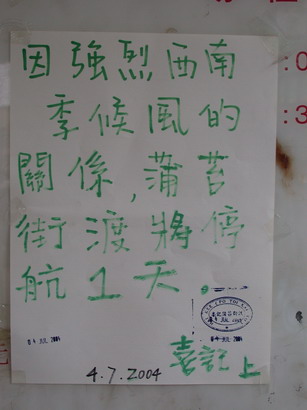 因強烈西南
季候風的
關係，蒲苔
街渡將停
航1天
袁記上
4.7.2004